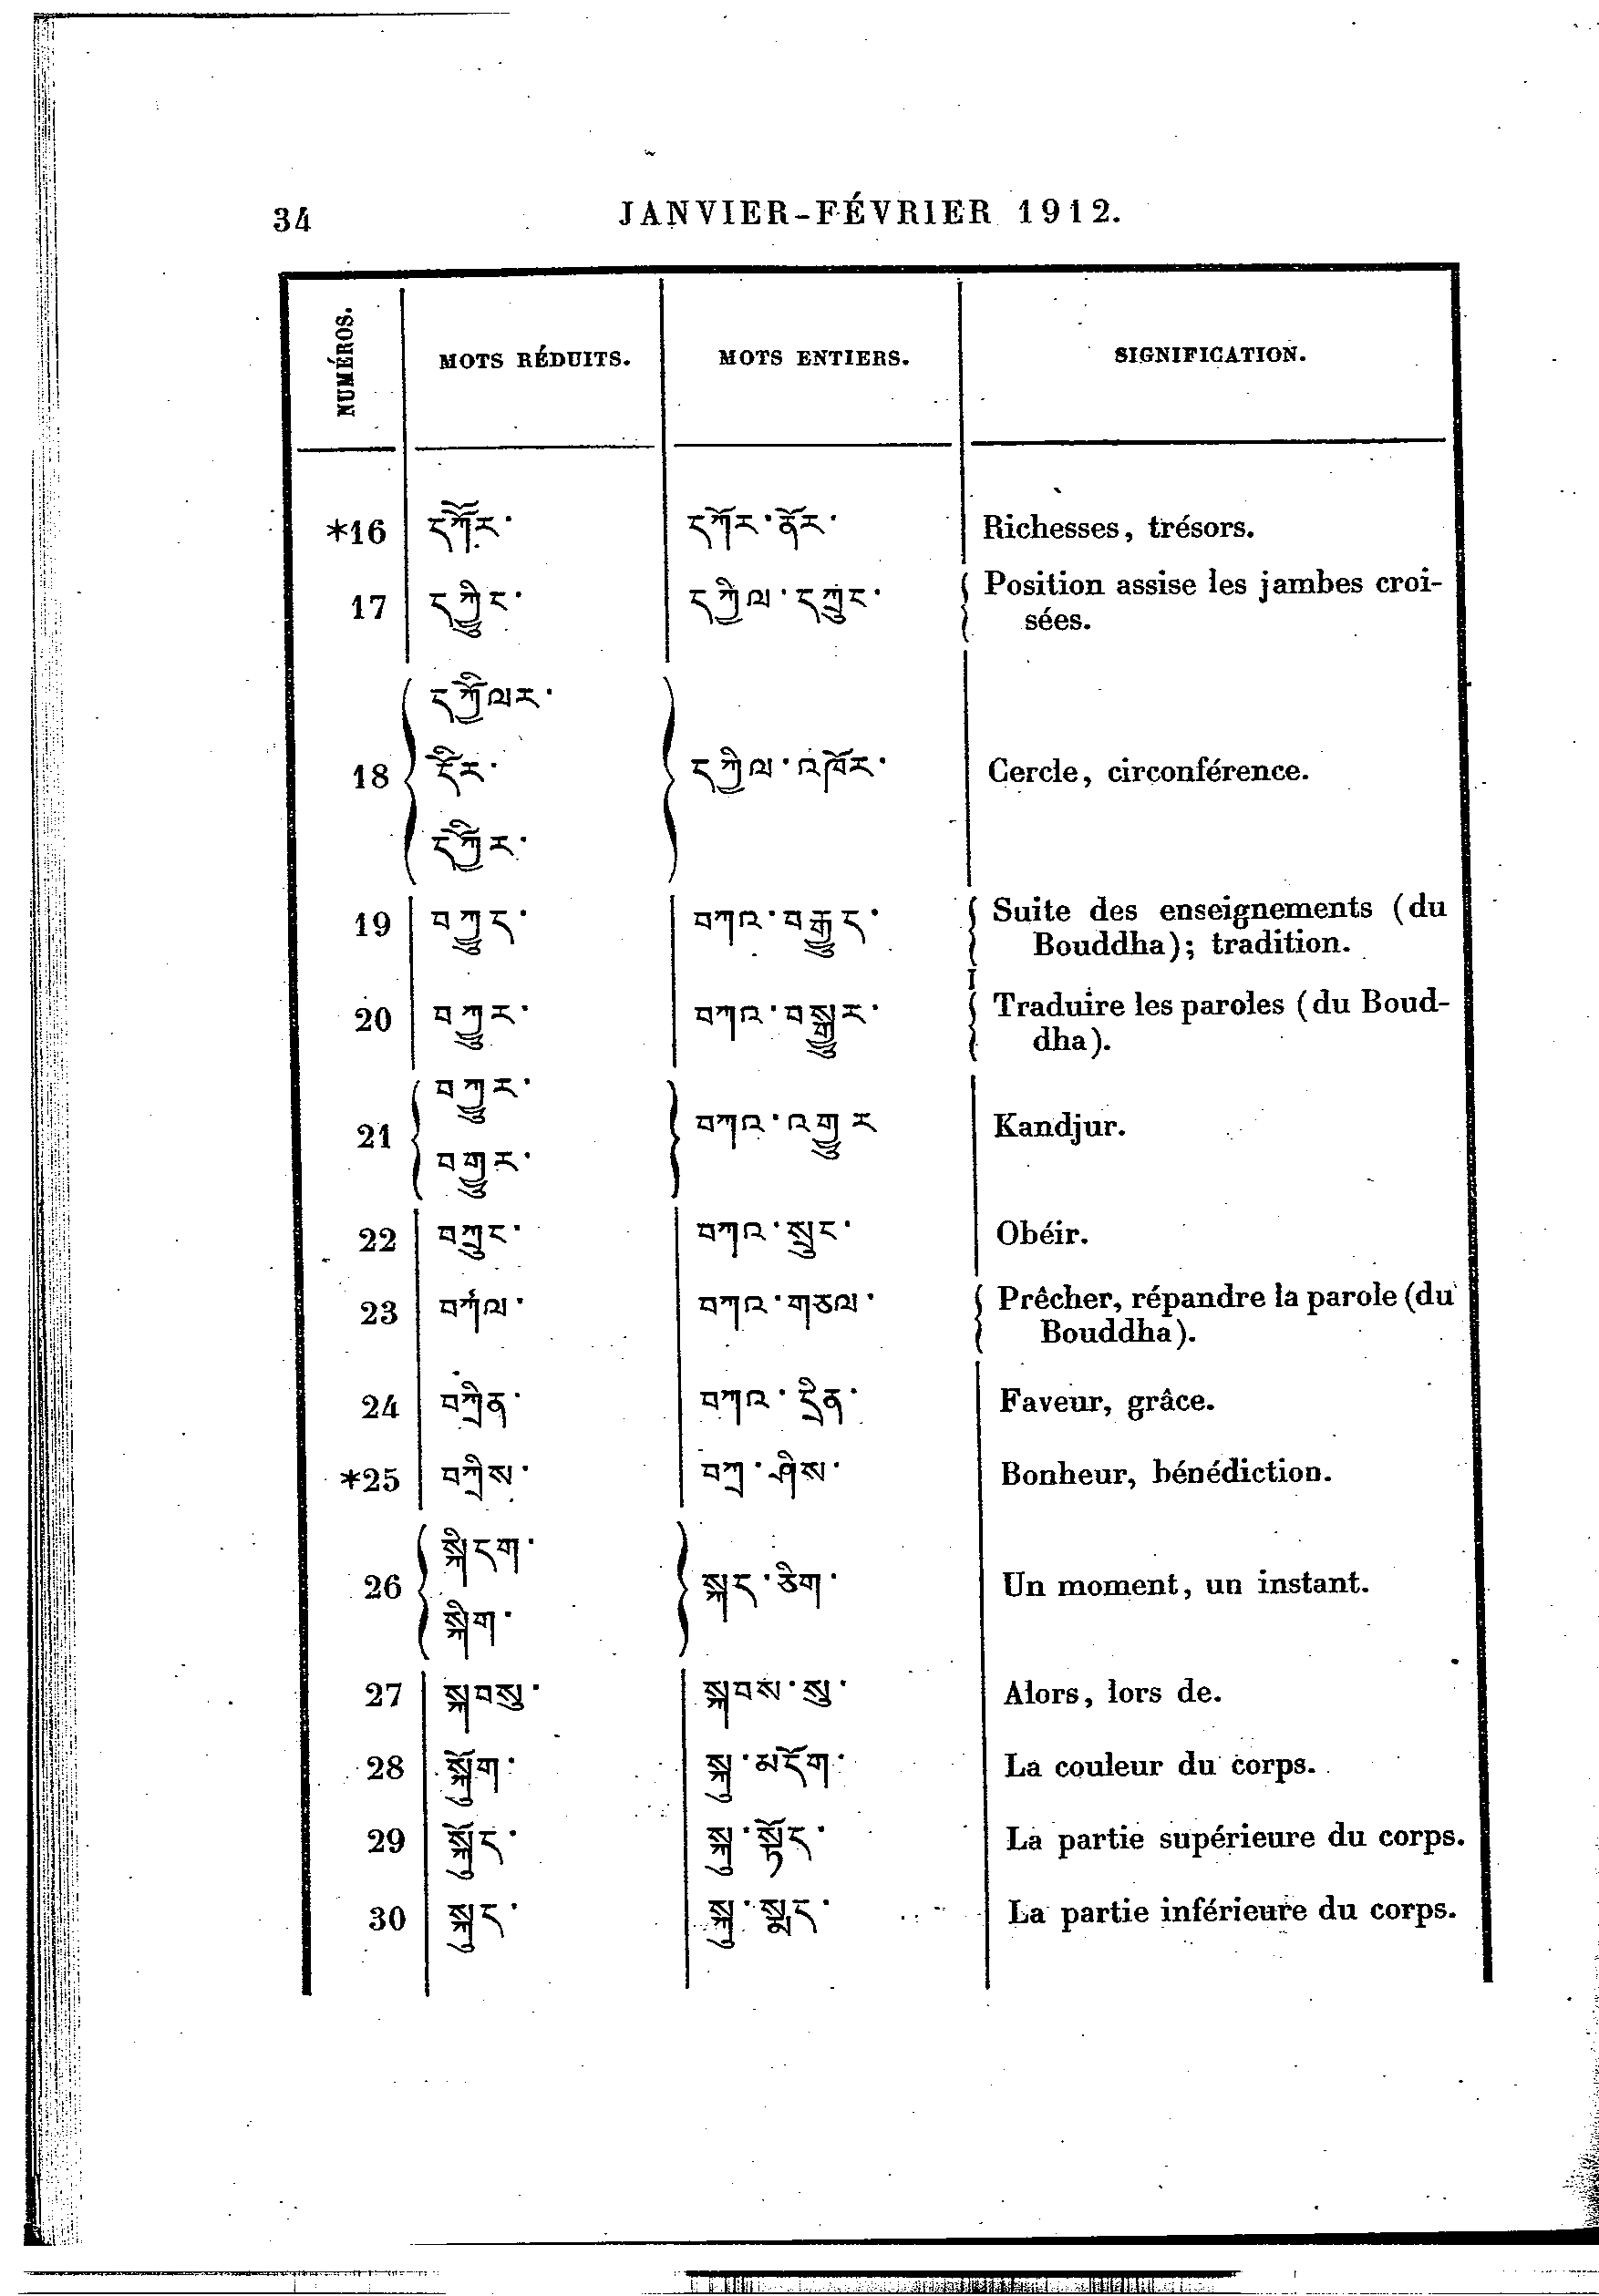 34 JANVIER-FÉVRIER 1912.
NUMÉROS. MOTS RÉDUITS. MOTS ENTIERS. SIGNIFICATION.
*16 དཀོོར་ དཀོར་ནོར་ Richesses, trésors.
17 དཀྱིུང་ དཀྱིལ་དཀྲུང་ Position assise les jambes croi-
sées.
དཀྱིོལར་
18 དིོར་ དཀྱིལ་འཁོར་ Cercle, circonférence.
དཀྱིོར་
19 བཀྱུད་ བཀའ་བརྒྱུད་ Suite des enseignements (du
Bouddha); tradition.
20 བཀྱུར་ བཀའ་བསྒྱུར་ Traduire les paroles (du Boud-
dha).
བཀྱུར་
21 བཀའ་འགྱུར Kandjur.
བགྱུར་
22 བཀྲུང་ བཀའ་སྲུང་ Obéir.
23 བཀལ་ བཀའ་གཅལ་ Prêcher, répandre la parole (du
Bouddha).
24 བཀྲིན་ བཀའ་དྲིན་ Faveur, grâce.
*25 བཀྲིས་ བཀྲ་ཤིས་ Bonheur, bénédiction.
སྐིདག་
26 སྐད་ཅིག་ Un moment, un instant.
སྐིག་
27 སྐབསུ་ སྐབས་སུ་ Alors, lors de.
28 སྐོུག་ སྐུ་མདོག་ La couleur du corps.
29 སྐོུད་ སྐུ་སྟོད་ La partie supérieure du corps.
30 སྐུད་ སྐུ་སྨད་ La partie inférieure du corps.